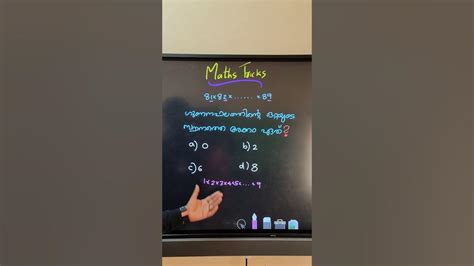 Maths Tricks
81 × 82 × ...... × 89
ഗുണനഫലത്തിന്റെ ഒറ്റയുടെ
സ്ഥാനത്തെ അക്കം ഏത് ?
a) 0 b) 2
c) 6 d) 8
1×2×3×4×5×...×9